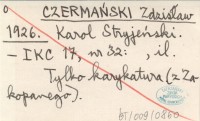 0 CZERMAŃSKI Zdzisław
1926. Karol Stryjeński.
– IKC 17, nr 32: , il.
Tylko karykatura (z Za-
kopanego).
BJ/009/0860